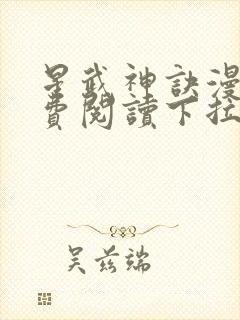 星武神訣漫
費閱讀下拉
吴兹端